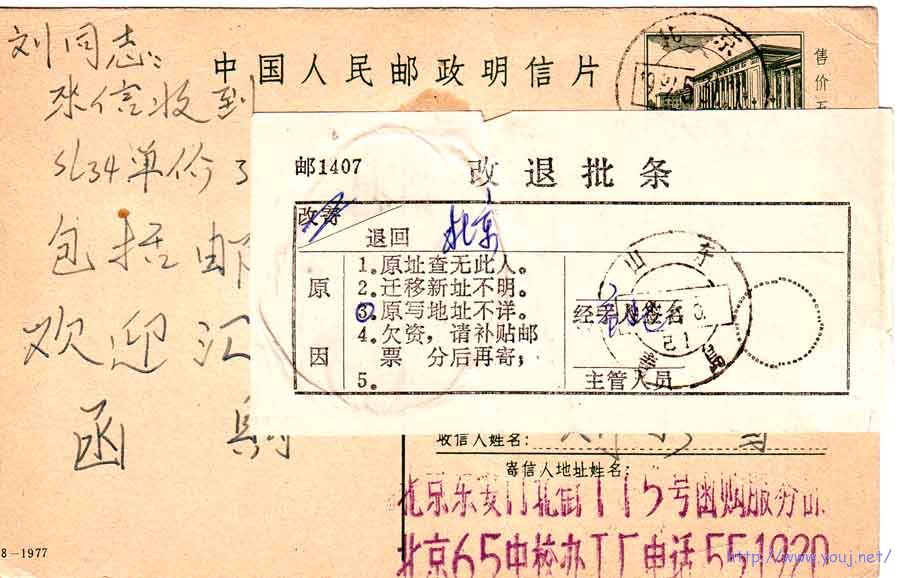 刘同志:
来信收到
SL34单价3
包括邮
欢迎汇
函
中国人民邮政明信片
北京
售价五
邮1407
改退批条
改寄
退回
北京
原因
1。原址查无此人。
2。迁移新址不明。
3。原写地址不详。
4。欠资，请补贴邮
票 分后再寄；
5。
经手人签名
主管人员
山东
收信人姓名：
寄信人地址姓名：
北京东安门北街115号函购服务部
北京65中校办工厂电话551920
8-1977
http://www.youj.net/